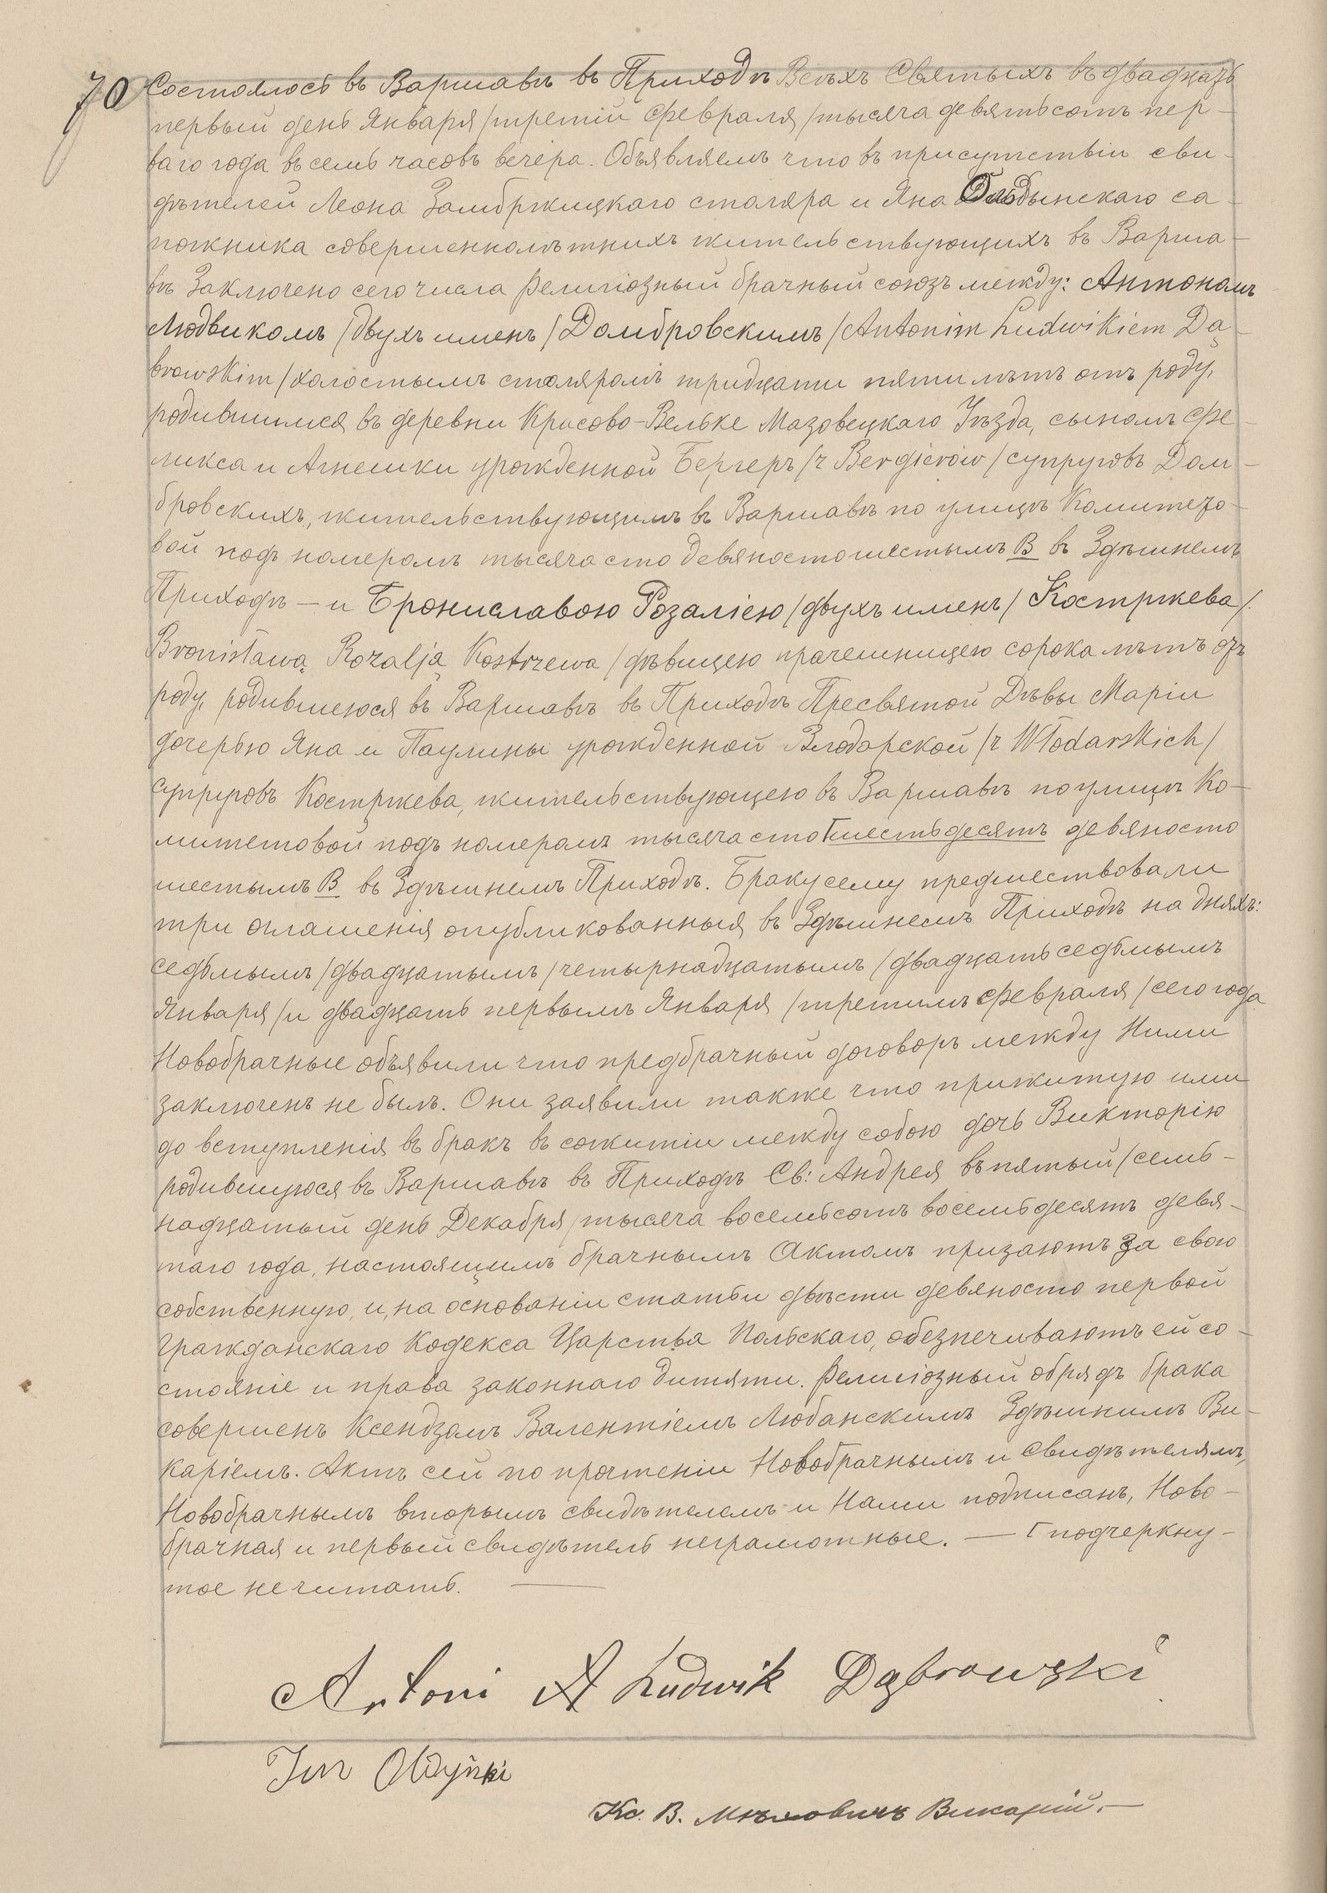 70 Состоялось въ Варшавѣ въ Приходѣ Всѣхъ Святыхъ въ двадцать
первый день Января /третій Февраля/ тысяча девятьсотъ пер-
ваго года въ семь часовъ вечера. Объявляемъ что въ присутствіи сви-
дѣтелей Леона Замбржицкаго столяра и Яна Ольдынскаго са-
пожника совершеннолѣтнихъ жительствующихъ въ Варша-
вѣ Заключено сего числа религіозный брачный союзъ между: Антономъ
Людвикомъ /двухъ именъ/ Домбровскимъ /Antonim Ludwikiem Dą-
browskim/ холостымъ столяромъ тридцати пяти лѣтъ отъ роду,
родившимся въ деревни Красово-Вельке Мазовецкаго Уѣзда, сыномъ Фе-
ликса и Агнешки урожденной Бергеръ /z Bergierów/ супруговъ Дом-
бровскихъ, жительствующимъ въ Варшавѣ по улицѣ Комитето-
вой подъ номеромъ тысяча сто девяносто шестымъ В въ Здѣшнемъ
Приходѣ — и Брониславою Розаліею /двухъ именъ/ Костржева/
Bronisławą Rozalją Kostrzewa/ дѣвицею прачешницею сорока лѣтъ отъ
роду, родившеюся въ Варшавѣ въ Приходѣ Пресвятой Дѣвы Маріи
дочерью Яна и Паулины урожденной Влодарской /z Włodarskich/
супруговъ Костржева, жительствующею въ Варшавѣ по улицѣ Ко-
митетовой подъ номеромъ тысяча сто Гшестьдесятъ девяносто
шестымъ В въ Здѣшнемъ Приходѣ. Браку сему предшествовали
три оглашенія опубликованныя въ Здѣшнемъ Приходѣ на дняхъ:
седьмымъ /двадцатымъ/ четырнадцатымъ /двадцать седьмымъ
Января/ и двадцать первымъ Января /третимъ Февраля/ сего года
Новобрачные объявили что предбрачный договоръ между Ними
заключенъ не былъ. Они заявили также что прижитую ими
до вступленія въ бракъ въ сожитіи между собою дочь Викторію
родившуюся въ Варшавѣ въ Приходѣ Св: Андрея въ пятый /семь-
надцатый день Декабря/ тысяча восемьсотъ восемьдесятъ девя-
таго года, настоящимъ брачнымъ Актомъ призаютъ за свою
собственную, и, на основаніи статьи двѣсти девяносто первой
Гражданскаго Кодекса Царства Польскаго, обезпечиваютъ ей со-
стояніе и права законнаго дитяти. Религіозный обрядъ брака
совершенъ Ксендзомъ Валентіемъ Любанскимъ Здѣшнимъ Ви-
каріемъ. Актъ сей по прочтеніи Новобрачнымъ и Свидѣтелямъ,
Новобрачнымъ вторымъ свидѣтелемъ и Нами подписанъ, Ново-
брачная и первый свидѣтель неграмотные. — Г подчеркну-
тое не читать. —
Antoni A Ludwik Dąbrowski
Jan Oldyński
Кс. В. Викарій. —